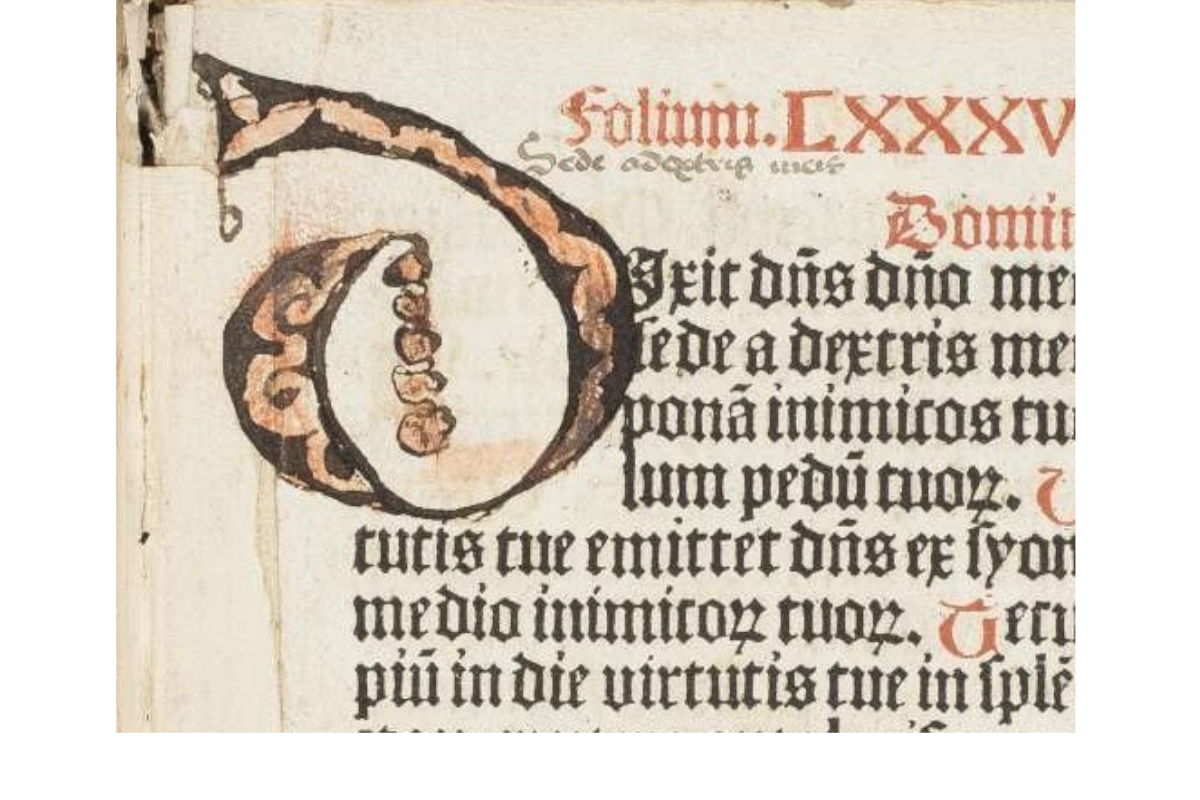 Folium. LXXXV
Sede adextris meis
Domin
DIxit dn̄s dn̄o me
sede a dextris me
ponā inimicos tu
lum pedū tuoꝝ.
tutis tue emittet dn̄s ex syon
medio inimicoꝝ tuoꝝ. Tecu
piū in die virtutis tue in splē